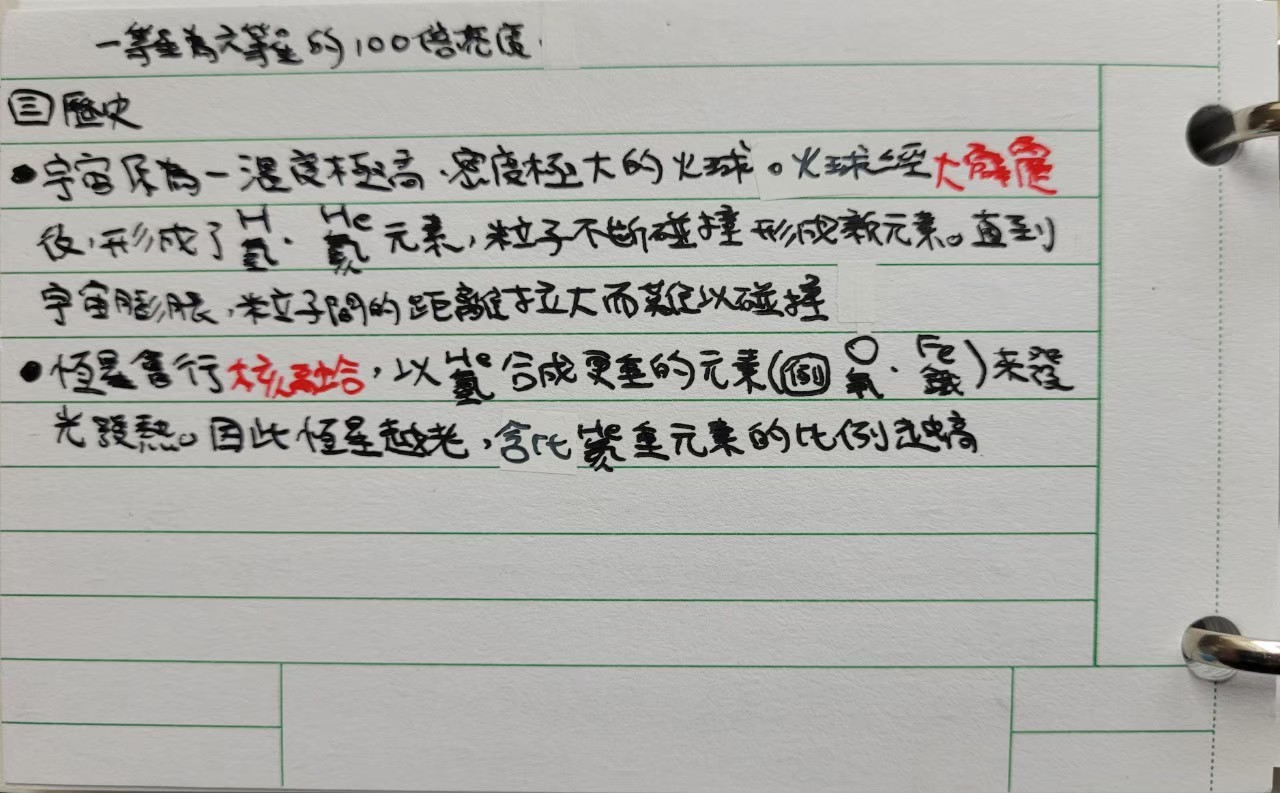 一等星為六等星的100倍亮度.
㊂歷史
●宇宙原為一溫度極高.密度極大的火球。火球經大霹靂
後,形成了氫H.氦He元素,粒子不斷碰撞形成新元素。直到
宇宙膨脹,粒子間的距離拉大而難以碰撞
●恆星會行核融合,以He氦合成更重的元素(例 O氧.Fe鐵)來發
光發熱。因此恆星越老,含比He氦重元素的比例越高